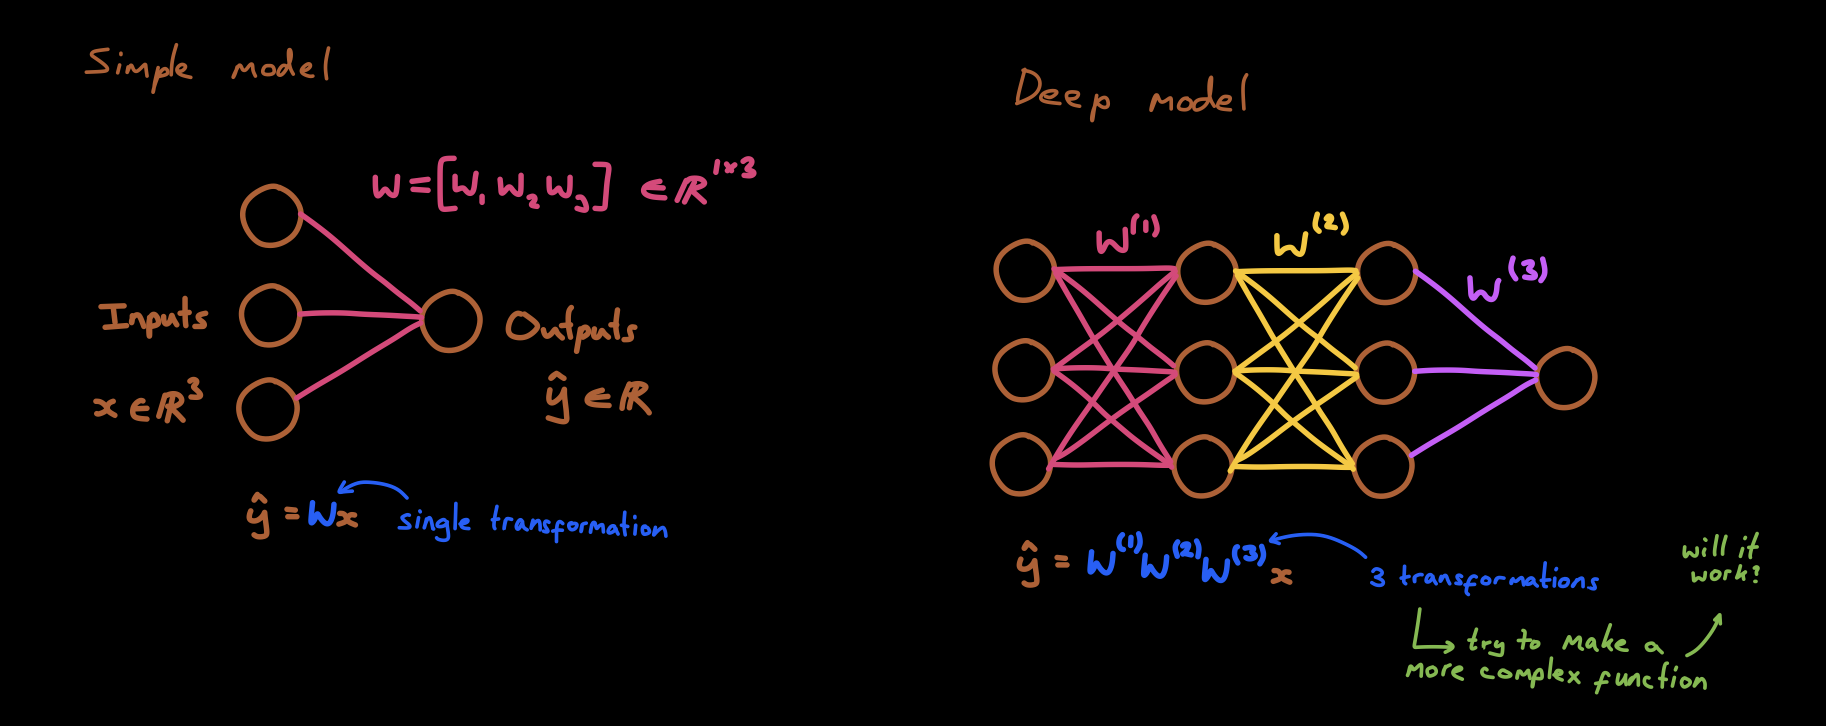 Simple model
W = [W₁ W₂ W₃] ∈ ℝ¹ˣ³
Inputs
x ∈ ℝ³
Outputs
ŷ ∈ ℝ
ŷ = Wx
single transformation
Deep model
W⁽¹⁾
W⁽²⁾
W⁽³⁾
ŷ = W⁽¹⁾W⁽²⁾W⁽³⁾x
3 transformations
try to make a
more complex function
will it
work?